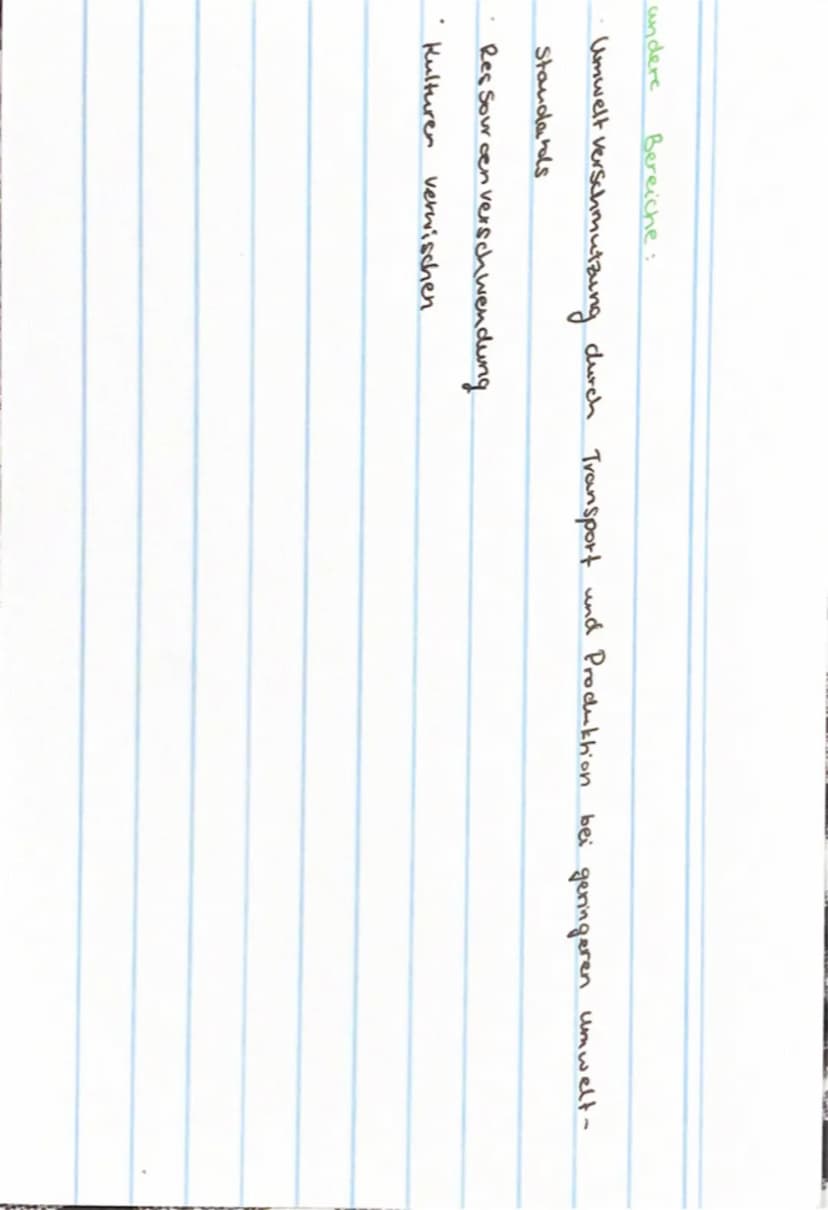 andere Bereiche:
· Umweltverschmutzung durch Transport und Produktion bei geringeren Umwelt-
standards
· Ressourcenverschwendung
· Kulturen verwischen